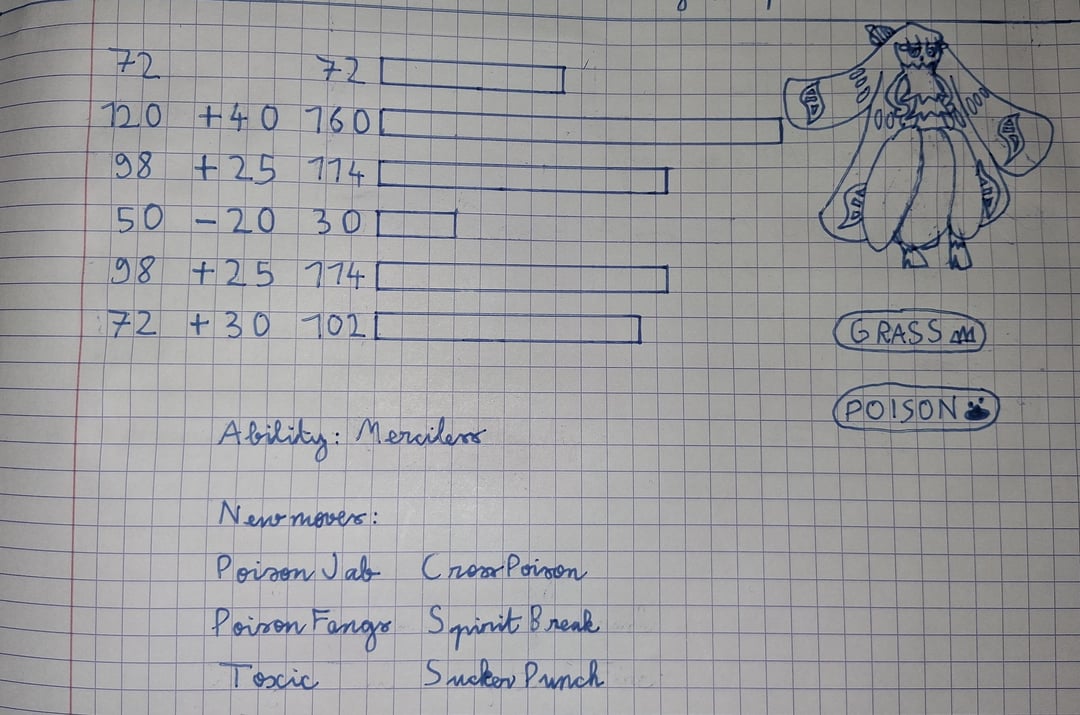 72 72
120 +40 160
98 +25 114
50 -20 30
98 +25 114
72 +30 102
GRASS
POISON
Ability: Merciless
New moves:
Poison Jab Cross Poison
Poison Fangs Spirit Break
Toxic Sucker Punch